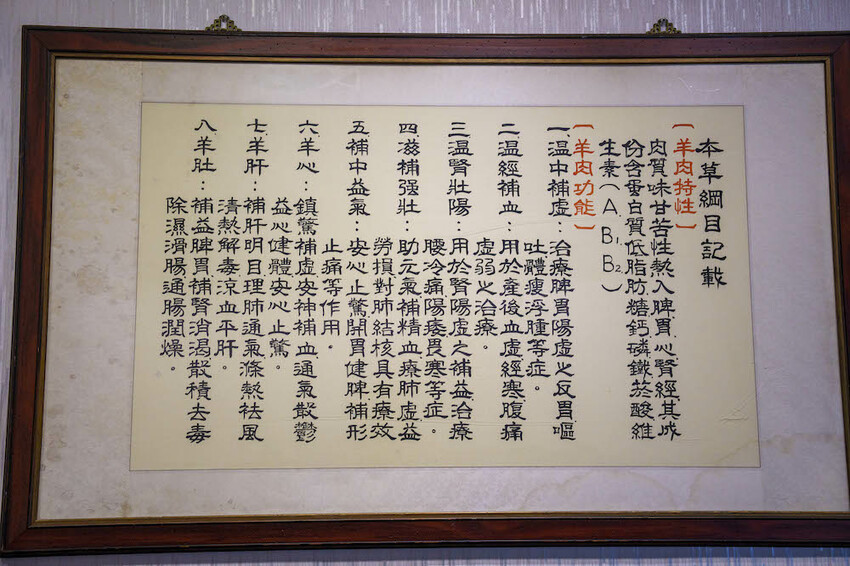 本草綱目記載
【羊肉特性】
肉質味甘苦性熱入脾胃心腎經其成
份含蛋白質低脂肪糖鈣磷鐵菸酸維
生素(A、B₁、B₂)
【羊肉功能】
一、温中補虛：治療脾胃陽虛之反胃嘔
吐體瘦浮腫等症。
二、温經補血：用於產後血虛經寒腹痛
虛弱之治療。
三、温腎壯陽：用於腎陽虛之補益治療
腰冷痛陽痿畏寒等症。
四、滋補强壯：助元氣補精血療肺虛益
勞損對肺結核具有療效
五、補中益氣：安心止驚開胃健脾補形
止痛等作用。
六、羊心：鎮驚補虛安神補血通氣散鬱
益心健體安心止驚。
七、羊肝：補肝明目理肺通氣滌熱祛風
清熱解毒涼血平肝。
八、羊肚：補益脾胃補腎消渴散積去毒
除濕滑腸通腸潤燥。